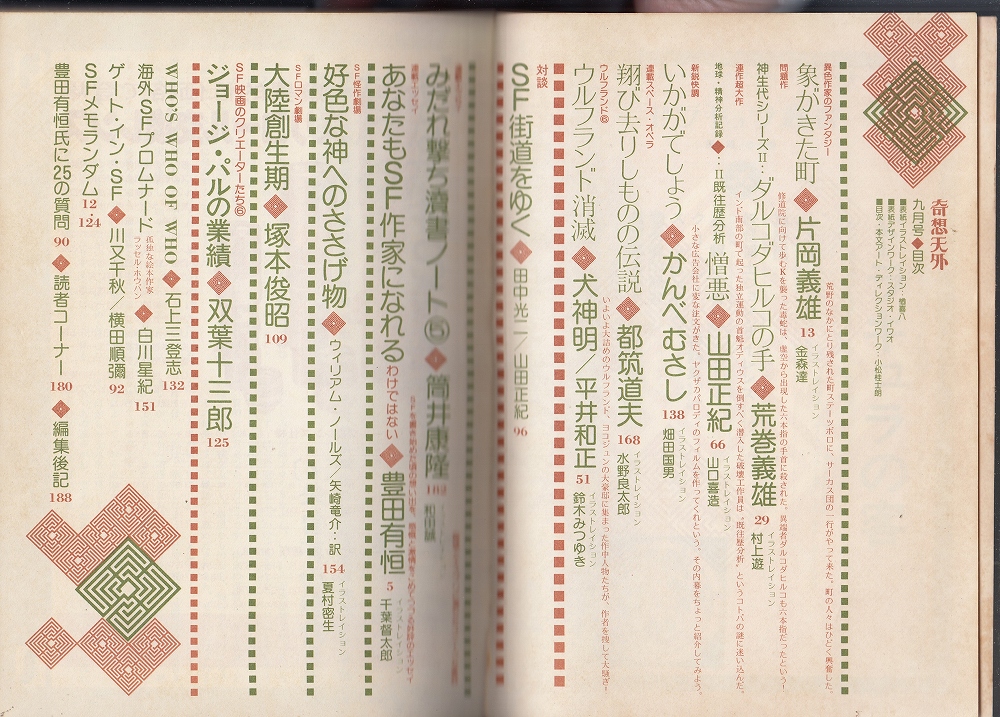 奇想天外
九月号◆目次
■表紙イラストレイション・楢喜八
■表紙デザインワーク・スタジオ・イワオ
■目次・本文アート・ディレクションワーク・小松桂士朗
異色作家のファンタジー
象がきた町◆片岡義雄 13 イラストレイション 金森達
荒野のなかにとり残された町ステーツボロに、サーカス団の一行がやって来た。町の人々はひどく興奮した。
問題作
神生代シリーズⅡ:ダルコダヒルコの手◆荒巻義雄 29 イラストレイション 村上遊
修道院に向けて歩むKを襲った毒蛇は、虚空から出現した六本指の手首に殺された。異端者ダルコダヒルコも六本指だったという!
連作超大作
地球・精神分析記録◆:Ⅱ既往歴分析 憎悪◆山田正紀 66 イラストレイション 山口喜造
インド南部の町で起った独立運動の首魁オディウスを倒すべく潜入した破壊工作員は〝既往歴分析〟というコトバの謎に迷い込んだ。
新鋭快調
いかがでしょう◆かんべむさし 138 イラストレイション 畑田国男
小さな広告会社に変な注文がきた。ヤクザのパロディのフィルムを作ってくれという。その内幕をちょっと紹介してみよう。
連載スペース・オペラ
翔び去りしものの伝説◆都筑道夫 168 イラストレイション 水野良太郎
ウルフランド⑥
ウルフランド消滅◆犬神明/平井和正 51 イラストレイション 鈴木みつゆき
いよいよ大詰めのウルフランド、ヨコジュンの大豪邸に集まった作中人物たちが、作者を捜して大騒ぎ!
対談
SF街道をゆく◆田中光二/山田正紀 96
みだれ撃ち瀆書ノート⑮◆筒井康隆 182 和田誠
連載エッセイ
あなたもSF作家になれるわけではない◆豊田有恒 5 イラストレイション 千葉督太郎
SF怪作劇場
好色な神へのささげ物◆ウィリアム・ノールズ/矢崎竜介:訳 154 イラストレイション 夏村密生
SFロマン劇場
大陸創生期◆塚本俊昭 109
SF映画のクリエーターたち⑥
ジョージ・パルの業績◆双葉十三郎 125
WHO'S WHO OF WHO◆石上三登志 132
海外SFプロムナード 孤独な絵本作家 ラッセル・ホウバン◆白川星紀 151
ゲート・イン・SF◆川又千秋/横田順彌 92
SFメモランダム 12・124
豊田有恒氏に25の質問 90◆読者コーナー 180◆編集後記 188